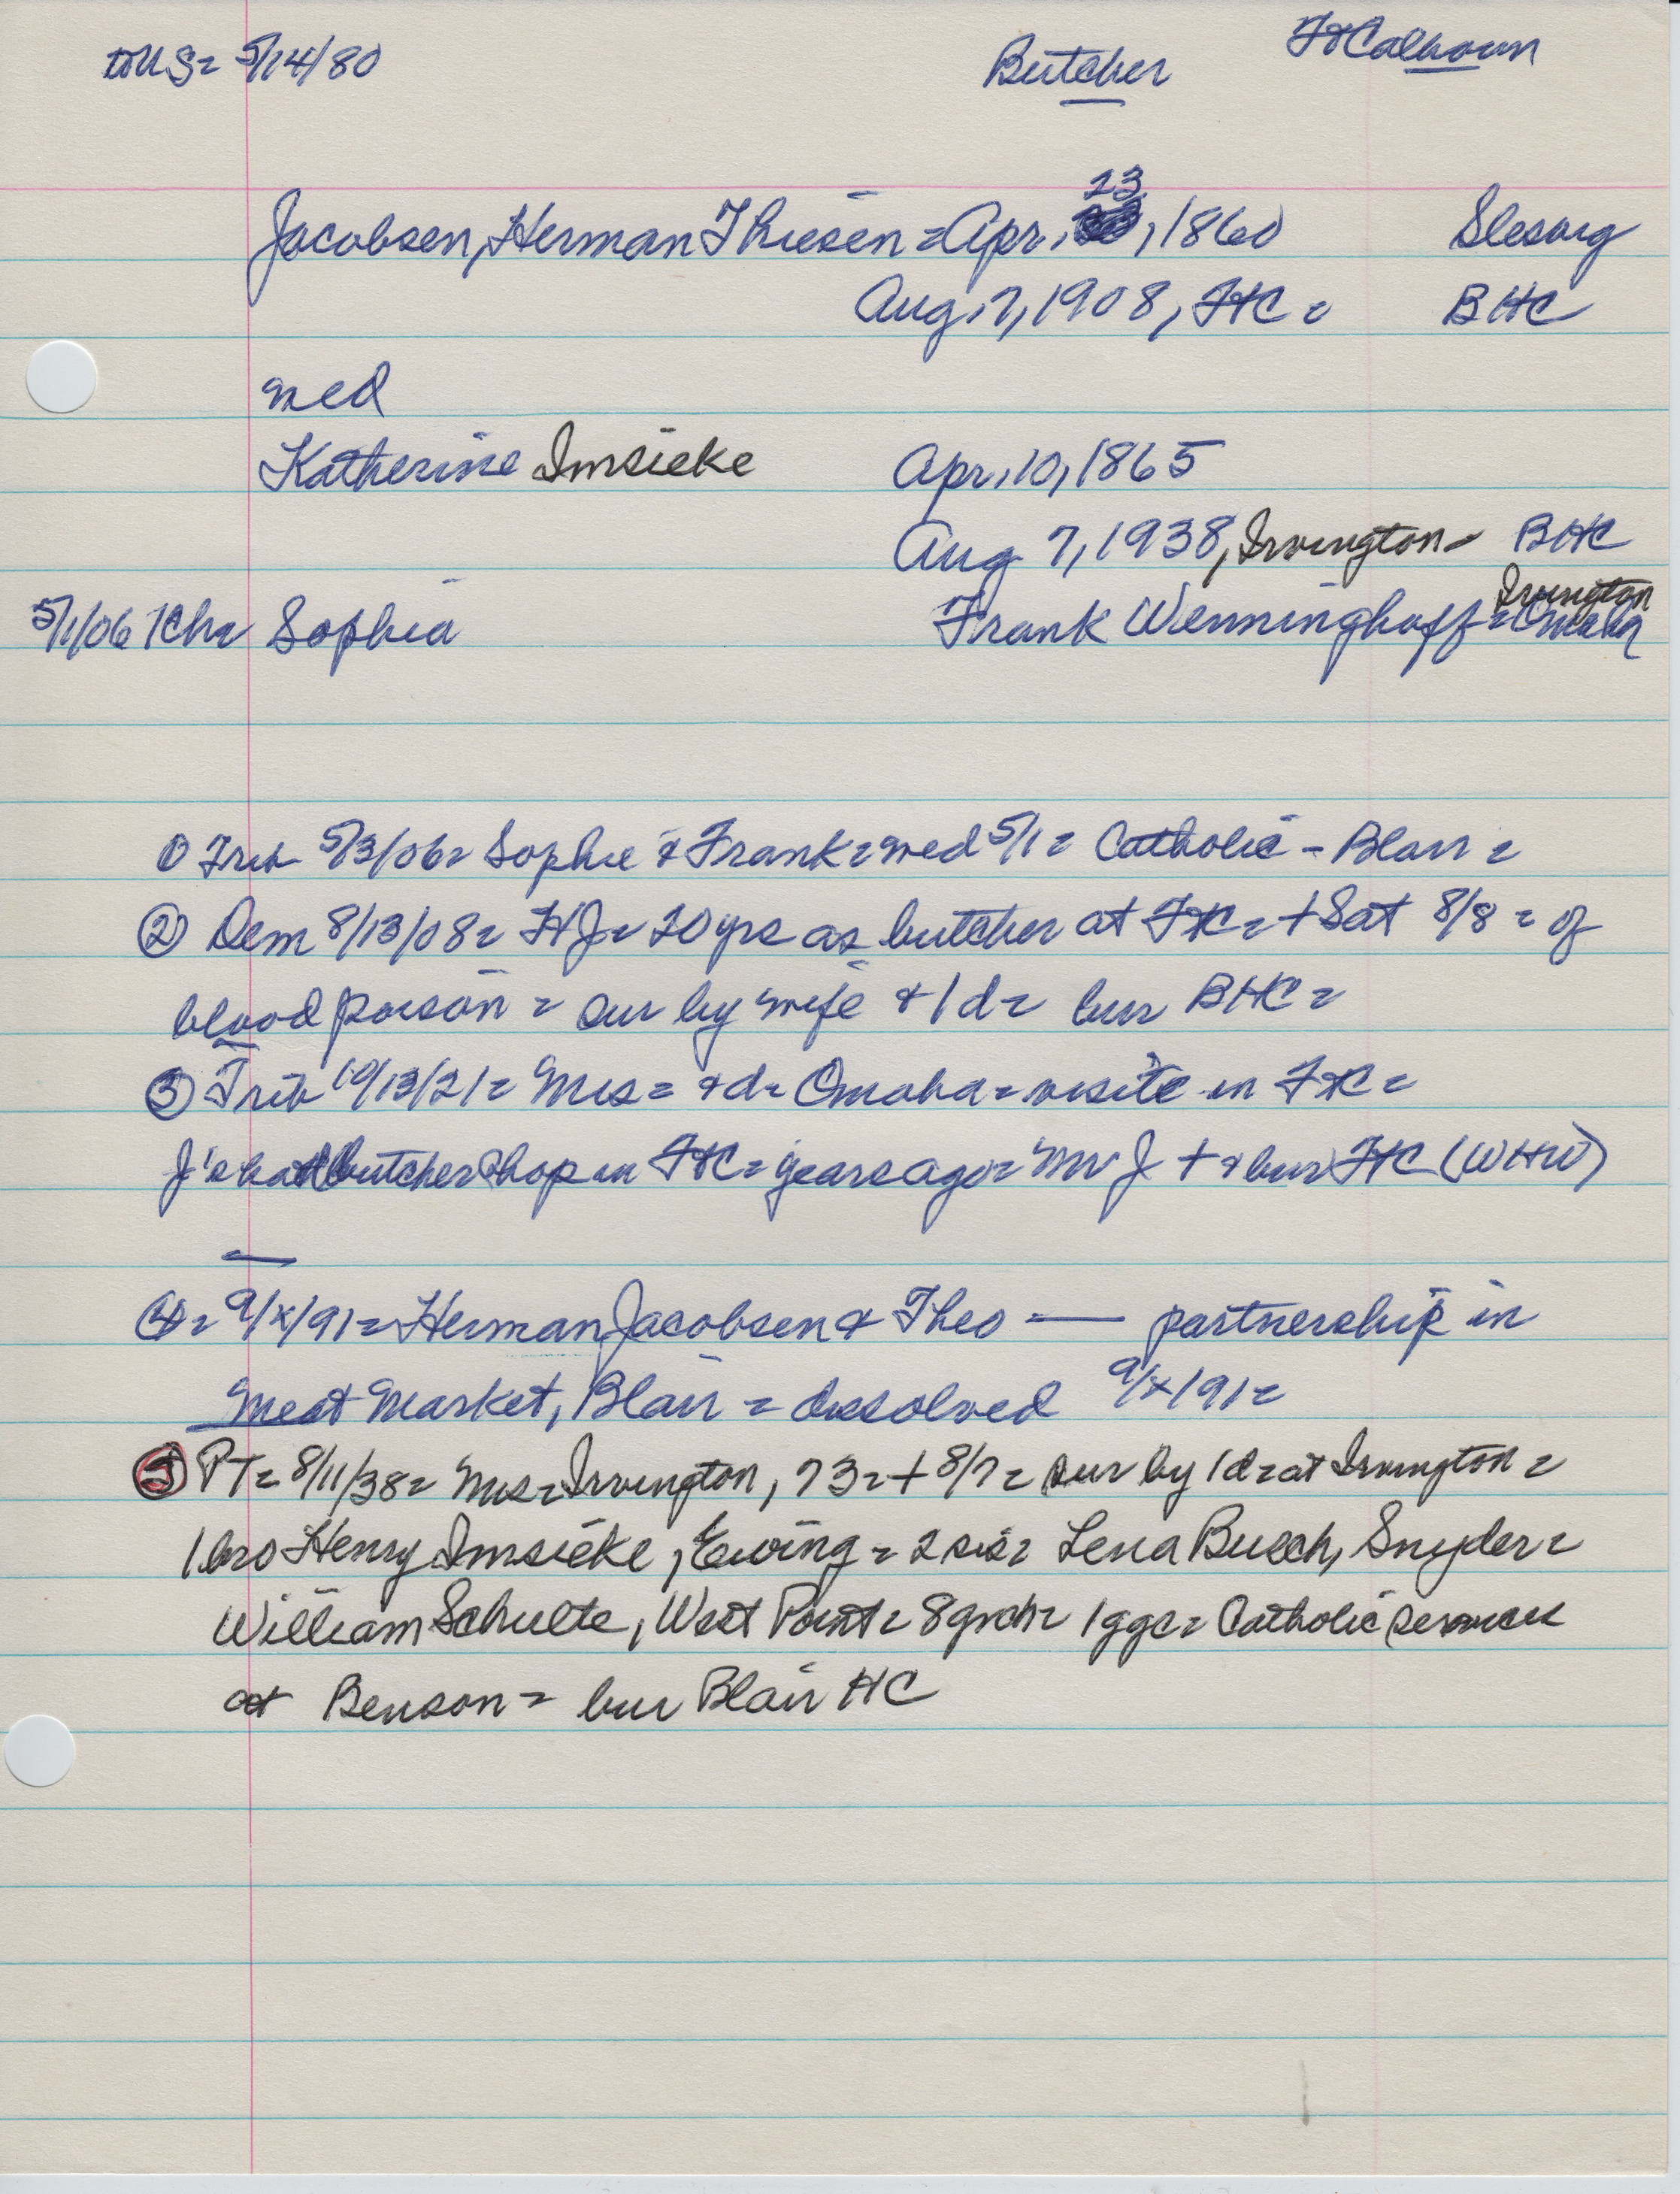 to US = 5/14/80 Butcher Ft Calhoun
Jacobsen, Herman Thiesen = Apr. 23, 1860 Slesvig
Aug. 7, 1908, FtC = BHC
med
Katherine Imsieke Apr. 10, 1865
Aug 7, 1938, Irvington = BHC
Irvington
5/1/06 1Ch = Sophia Frank Wenninghoff = Omaha
① Trib 5/3/06 = Sophie & Frank = med 5/1 = Catholic - Blair =
② Dem 8/13/08 = HJ = 20 yrs as butcher at FtC = + Sat 8/8 = of
blood poison = sur by wife & 1 d = bur BHC =
③ Trib 10/13/21 = Mrs = & d = Omaha = visite in FtC =
J's had butcher shop in FtC = years ago = Mr J + & bur FtC (WHW)
④ = 9/x/91 = Herman Jacobsen & Theo — partnership in
Meat Market, Blair = dissolved 9/x/91 =
⑤ PT = 8/11/38 = Mrs = Irvington, 73 = + 8/7 = sur by 1 d = at Irvington =
1 bro Henry Imsieke, Ewing = 2 sis = Lena Busch, Snyder =
William Schulte, West Point = 8 grch = 1 ggc = Catholic services
at Benson = bur Blair HC